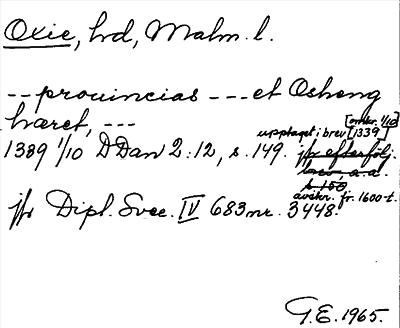 Oxie, hd, Malm. l.
-- prouincias --- et Osheng
hæret, ---
[omkr. 1/10
upptaget i brev [1339]
1339 1/10 DDan 2:12, s. 149. jfr efterfölj.
brev, a.a.
s. 150
avskr. fr. 1600-t.
jfr Dipl. Svec. IV 683 nr. 3448.
G.E. 1965.